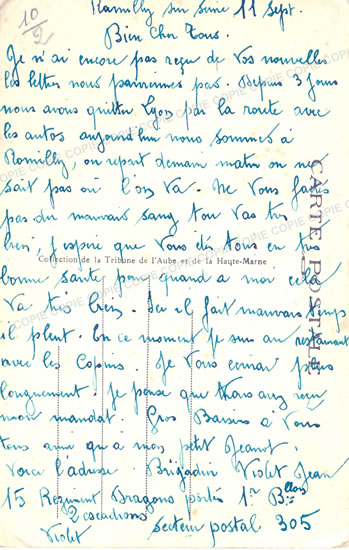 10/9
Romilly sur seine 11 sept.
Bien Cher Tous.
Je n'ai encore pas reçu de vos nouvelles
les lettres nous parviennes pas. Depuis 3 jours
nous avons quitter Lyon par la route avec
les autos aujourd'hui nous sommes à
Romilly, on repart demain matin on ne
sait pas où l'on va. Ne Vous faites
pas du mauvais sang tou vas très
bien, j'espère que Vous êtes tous en très
Collection de la Tribune de l'Aube et de la Haute-Marne
bonne santé, pour quand a moi cela
Va très bien. Ici il fait mauvais temps
il pleut. En ce moment je suis au restaurant
avec les Copins. Je Vous écrirai plus
longuement. Je pense que aurez reçu
mon mandat. Gros Baisers à Vous
tous ainsi qu'a mon petit Jeanot.
Voici l'adresse. Brigadier Violet Jean
15 Regiment Dragons portés 1er Bllon
2 escadrons
Violet secteur postal 305
CARTE POSTALE
COPIE COPIE COPIE COPIE